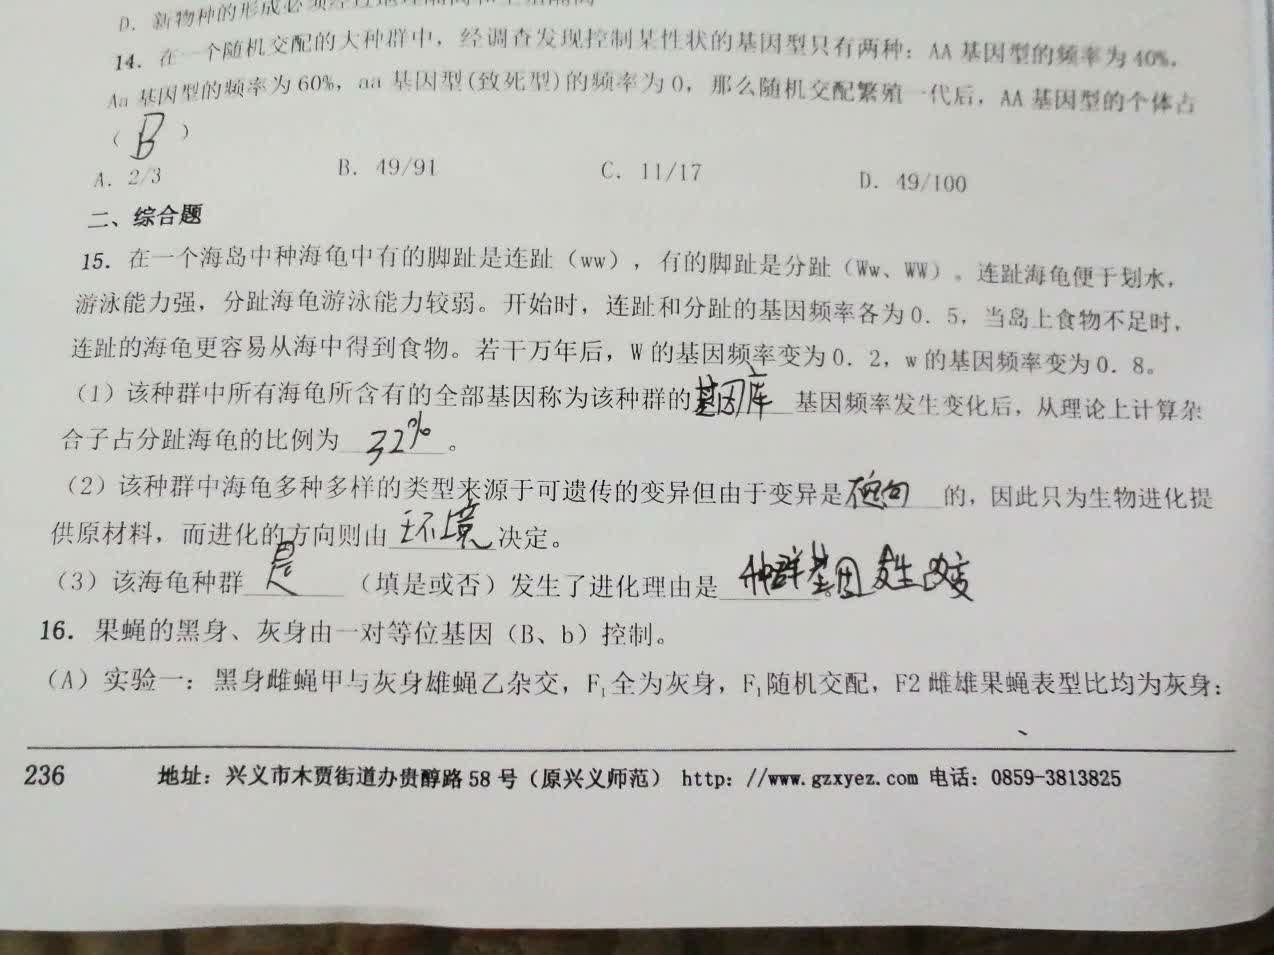 D. 新物种的形成必须经过地理隔离和生殖隔离
14. 在一个随机交配的大种群中，经调查发现控制某性状的基因型只有两种：AA 基因型的频率为 40%，
Aa 基因型的频率为 60%，aa 基因型(致死型)的频率为 0，那么随机交配繁殖一代后，AA 基因型的个体占
（ B ）
A. 2/3 B. 49/91 C. 11/17 D. 49/100
二、综合题
15. 在一个海岛中种海龟中有的脚趾是连趾（ww），有的脚趾是分趾（Ww、WW）。连趾海龟便于划水，
游泳能力强，分趾海龟游泳能力较弱。开始时，连趾和分趾的基因频率各为 0．5，当岛上食物不足时，
连趾的海龟更容易从海中得到食物。若干万年后，W 的基因频率变为 0．2，w 的基因频率变为 0．8。
（1）该种群中所有海龟所含有的全部基因称为该种群的基因库 基因频率发生变化后，从理论上计算杂
合子占分趾海龟的比例为 32% 。
（2）该种群中海龟多种多样的类型来源于可遗传的变异但由于变异是 的，因此只为生物进化提
供原材料，而进化的方向则由 环境 决定。
（3）该海龟种群 是 （填是或否）发生了进化理由是 种群基因发生改变
16. 果蝇的黑身、灰身由一对等位基因（B、b）控制。
（A）实验一：黑身雌蝇甲与灰身雄蝇乙杂交，F₁全为灰身，F₁随机交配，F2 雌雄果蝇表型比均为灰身：
236 地址：兴义市木贾街道办贵醇路 58 号（原兴义师范） http：//www.gzxyez.com 电话：0859-3813825